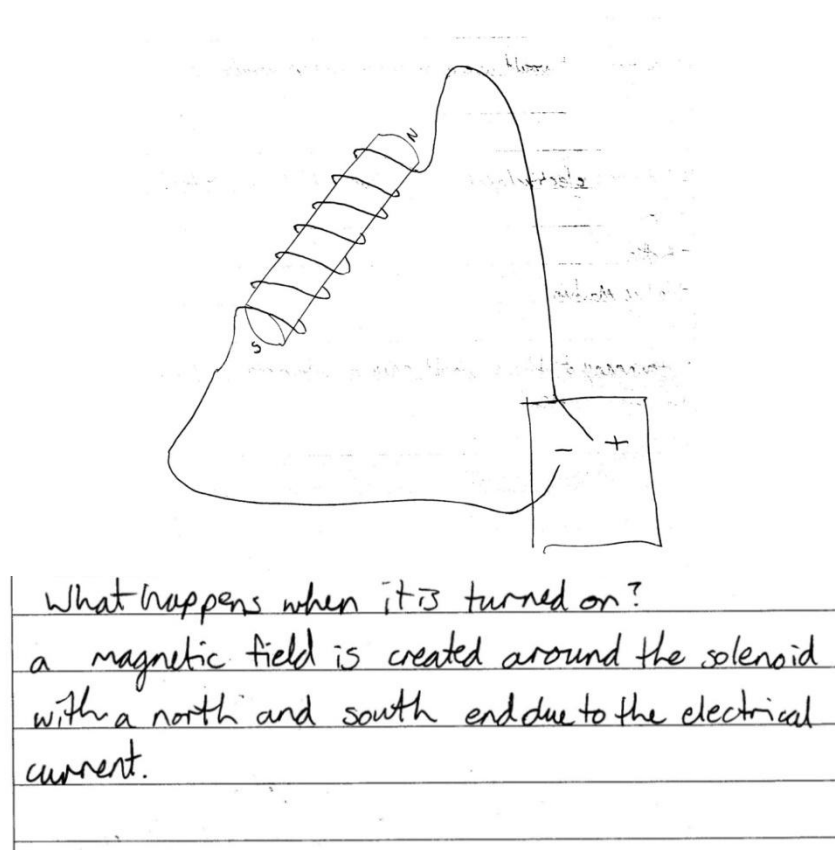 N
S
- +
What happens when it is turned on?
a magnetic field is created around the solenoid
with a north and south end due to the electrical
current.